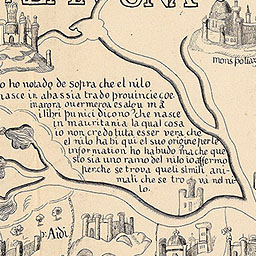 mons
io ho notado de sopra che el nilo
nasce in abassia tra do provincie zoe
marora e
i libri punici dicono che nasce
in mauritania la qual cosa
io non credo tuta esser vera che
el nilo habi qui el suo origine per le
information ho habudo ma che que
sto sia uno ramo del nilo io affermo
perche se trova queli simili ani-
mali che se trova nel ni-
lo.
p. Aidi